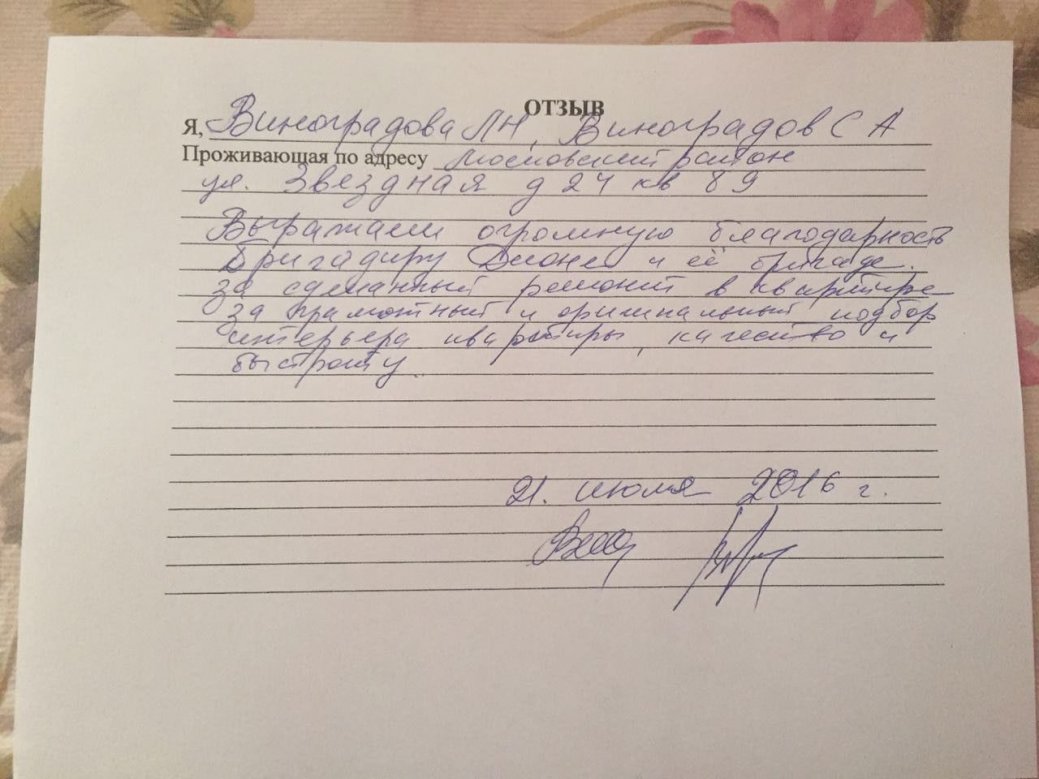 ОТЗЫВ
Я, Виноградова ЛН, Виноградов С А
Проживающая по адресу Московский район
ул. Звездная д 24 кв 89
Выражаем огромную благодарность
бригадиру и её бригаде.
за сделанный ремонт в квартире
за грамотный и оригинальный подбор
интерьера квартиры, качество и
быстроту.
21. июля 2016 г.